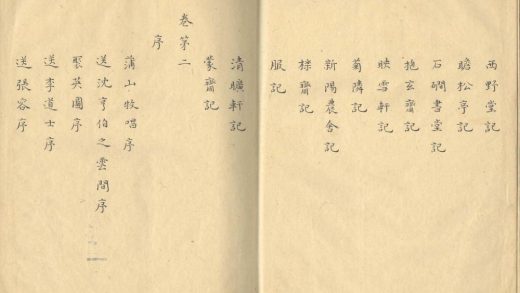 西野堂記
瞻松亭記
石磵書堂記
抱玄齋記
映雪軒記
菊隣記
新陽農舍記
樣齋記
服記
清曠軒記
蒙齋記
卷第二
序
蒲山牧唱序
送沈亨伯之雲間序
聚英圖序
送李道士序
送張容序